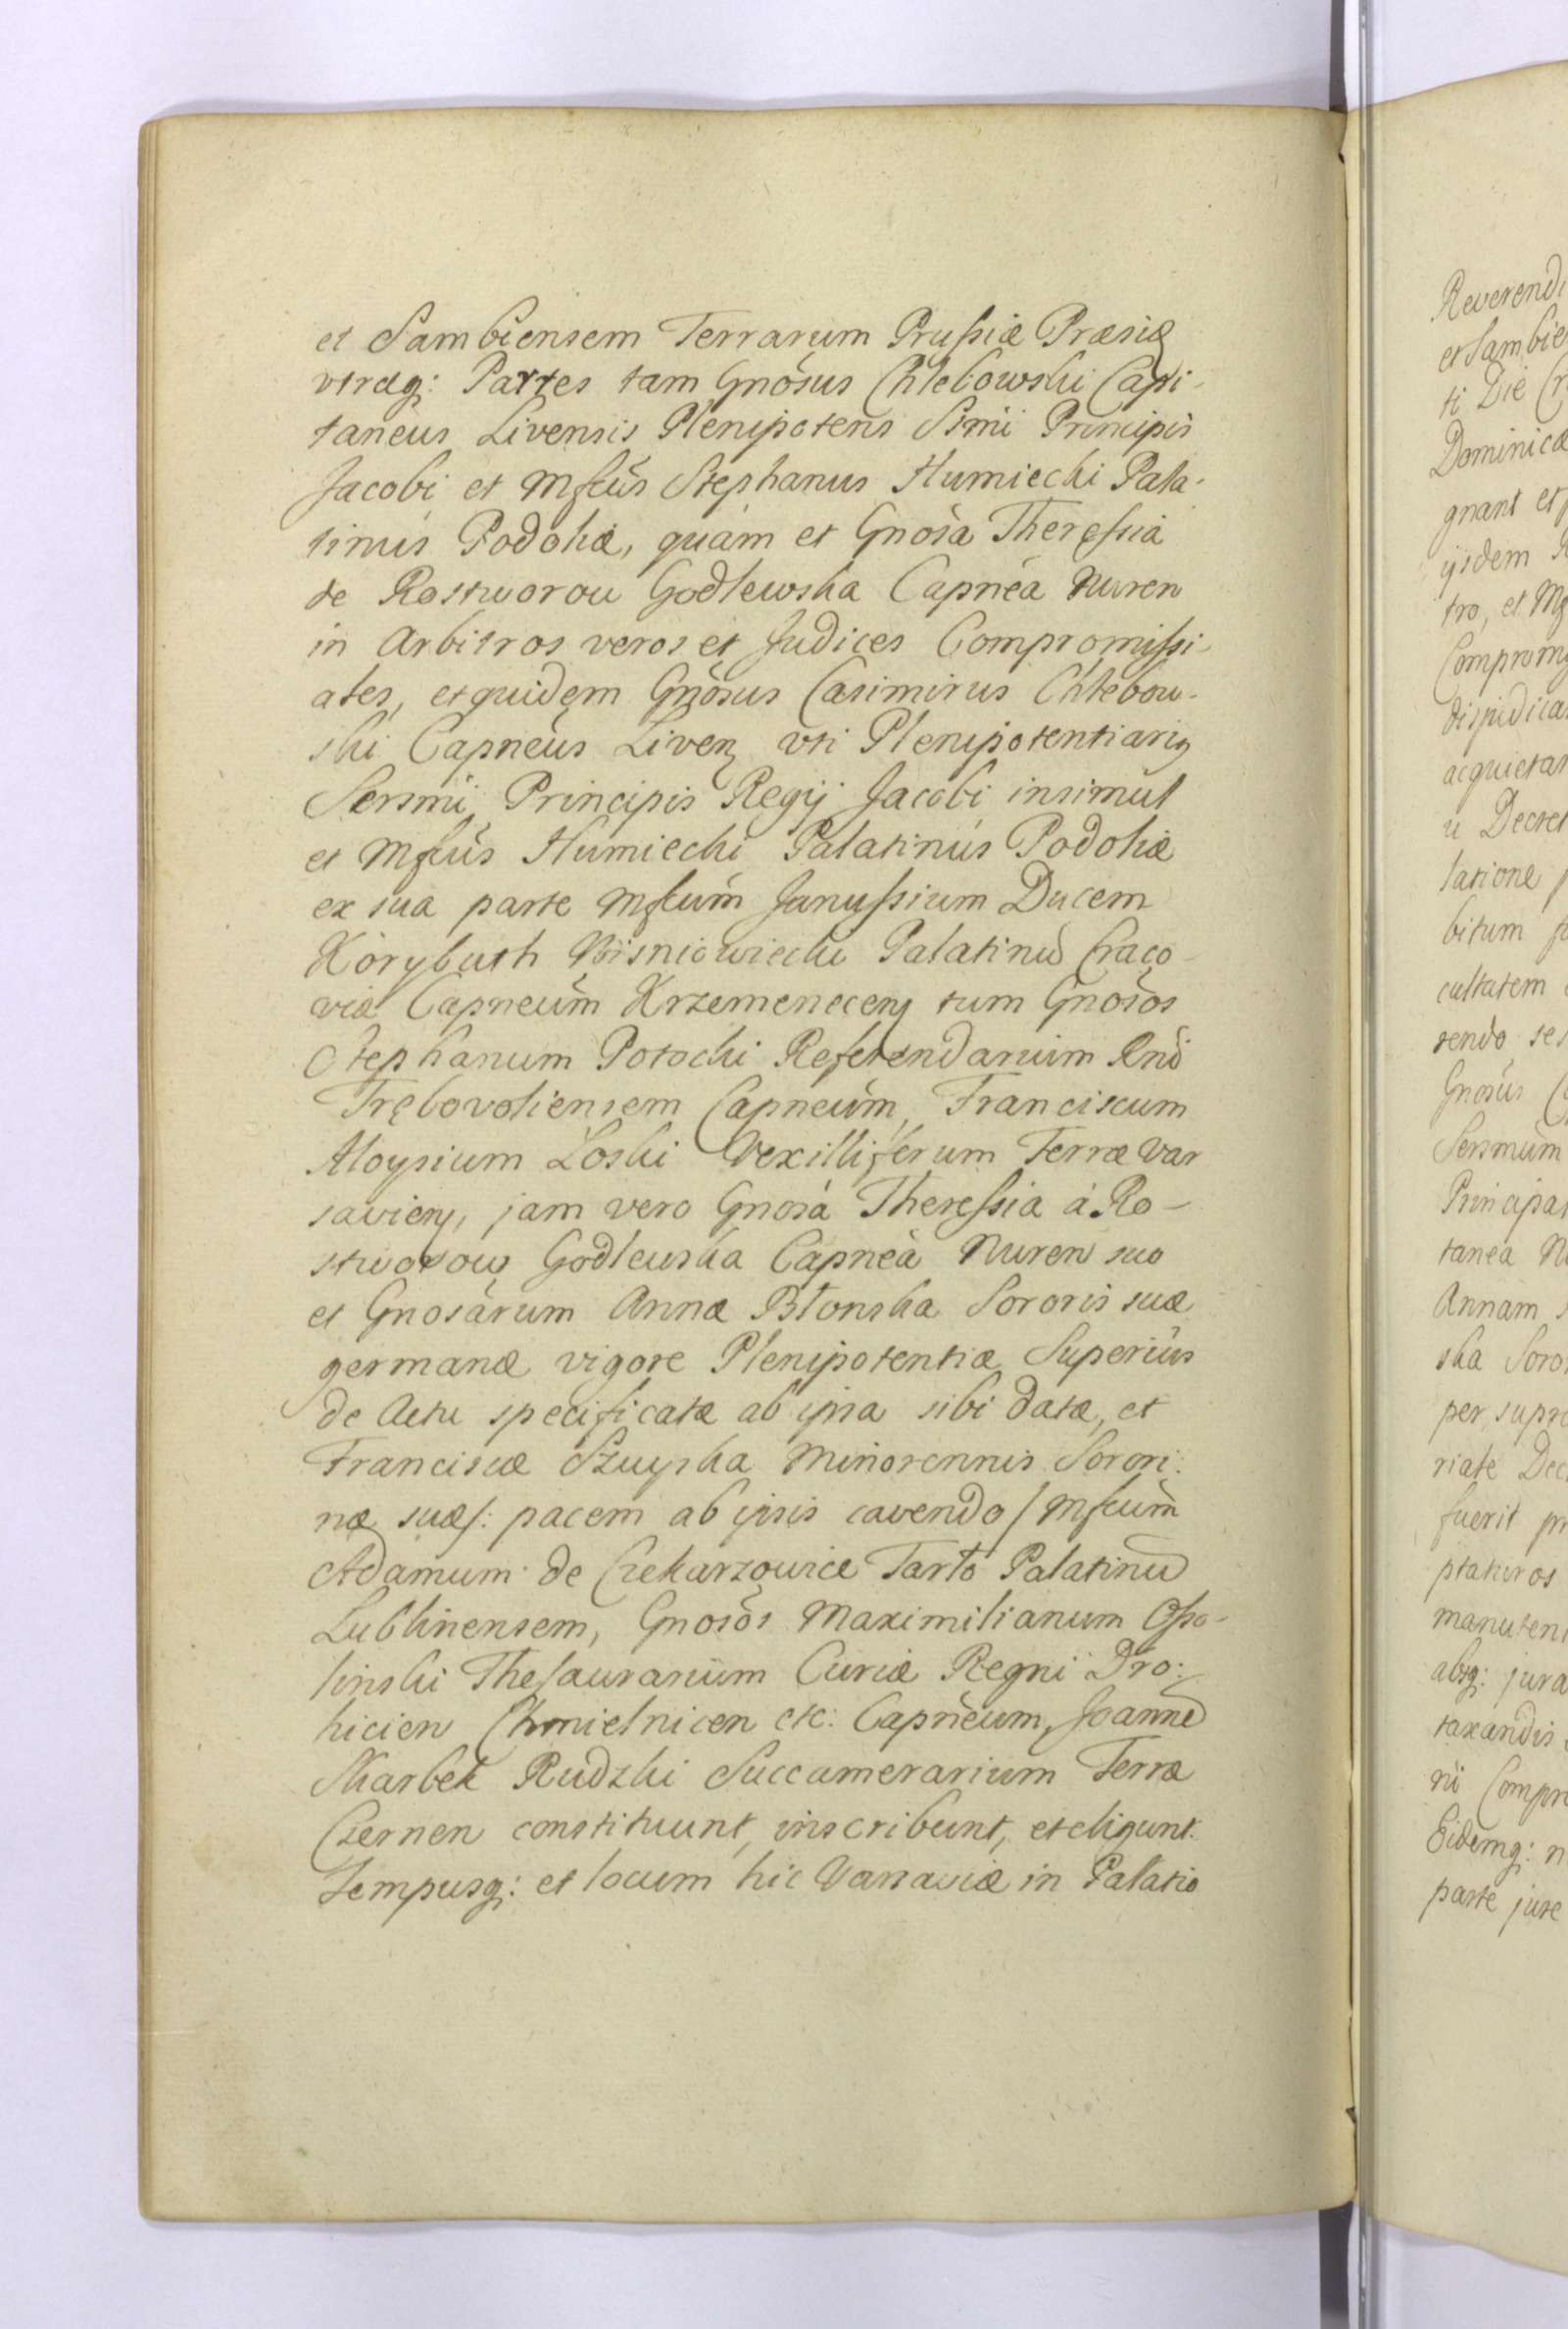 et Sambiensem Terrarum Prussiæ Præsid
vtræq: Partes tam Gnõsus Chlebowski Capi-
taneus Livensis Plenipotens Srmi Principis
Jacobi et Mfcũs Stephanus Humiecki Pala-
tinus Podoliæ, quàm et Gnõsa Theressia
de Rostworow Godlewska Capnẽa Nuren
in Arbitros veros et Judices Compromissi-
ales, et quidem Gnõsus Casimirus Chlebow-
ski Capnẽus Liven vti Plenipotentiariq
Sersmi Principis Regij Jacobi insimul
et Mfcũs Humiecki Palatinus Podoliæ
ex sua parte Mfcũm Janussium Ducem
Korybuth Wisniowiecki Palatinũ Craco-
viæ Capneũm Krzemenecen tum Gnõsos
Stephanum Potocki Referendarium Rni
Trębovoliensem Capneũm, Franciscum
Aloysium Łoski Vexilliferum Terræ Var
savien, jam vero Gnõsa Theressia à Ro-
stworow Godlewska Capnẽa Nuren suo
et Gnosarum Annæ Błonska Sororis suæ
germanæ vigore Plenipotentiæ Superius
de Actu specificatæ ab ipsa sibi datæ, et
Franciscæ Szuyska Minorennis Sorori:
næ suæ/: pacem ab ipsis cavendo / Mfcũm
Adamum de Czekarzowice Tarło Palatinũ
Lublinensem, Gnõsos Maximilianum Osso-
linski Thesaurarium Curiæ Regni Dro:
hicien Chmielnicen etc: Capnẽum, Joannẽ
Skarbek Rudzki Succamerarium Terræ
Czernen constituunt, inscribunt, et eligunt.
Tempusq: et locum hic Varsaviæ in Palatio

Reverendi
et Sambie
ti Die
Dominicæ
gnant et
ijsdem
tro, et
Compromi
dijudica
acquietan
Decret
latione
bitum
cultatem
rendo se
Gnõsus
Sersmum
Principa
tanea
Annam
ska Soro
per supra
riate Dec
fuerit
ptaturos
manuteni
absq: jura
taxandis
rii Compro
Eidemq:
parte jure